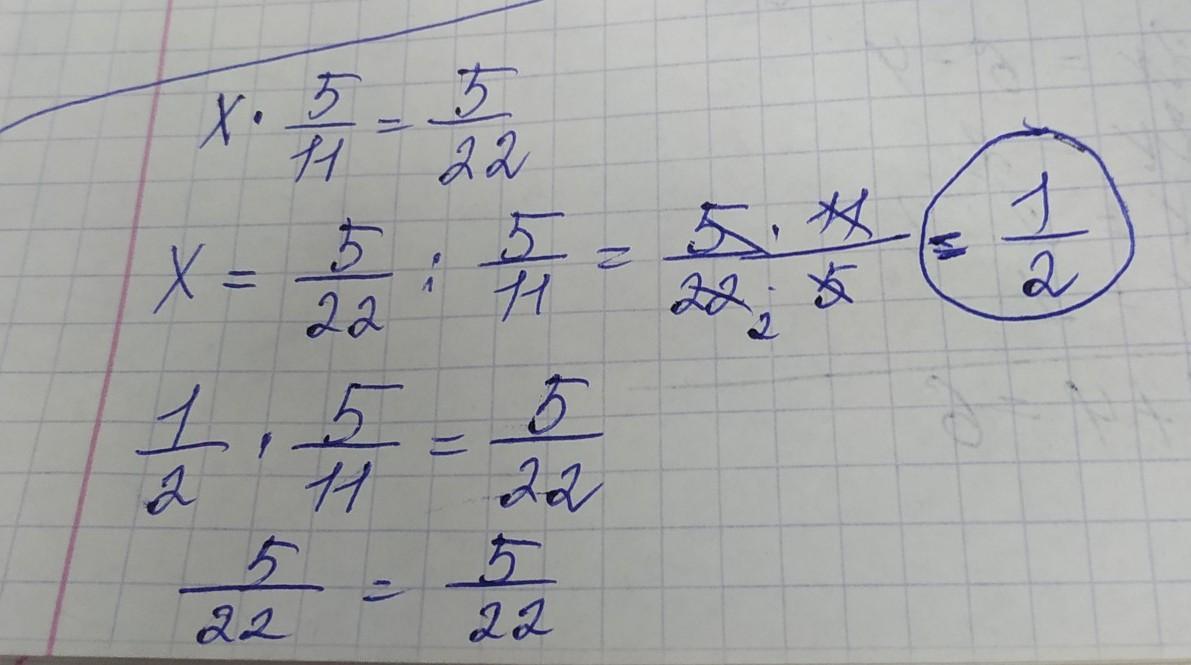 x · 5/11 = 5/22
x = 5/22 : 5/11 = 5 · 11 / 22 2 · 5 = 1/2
1/2 · 5/11 = 5/22
5/22 = 5/22